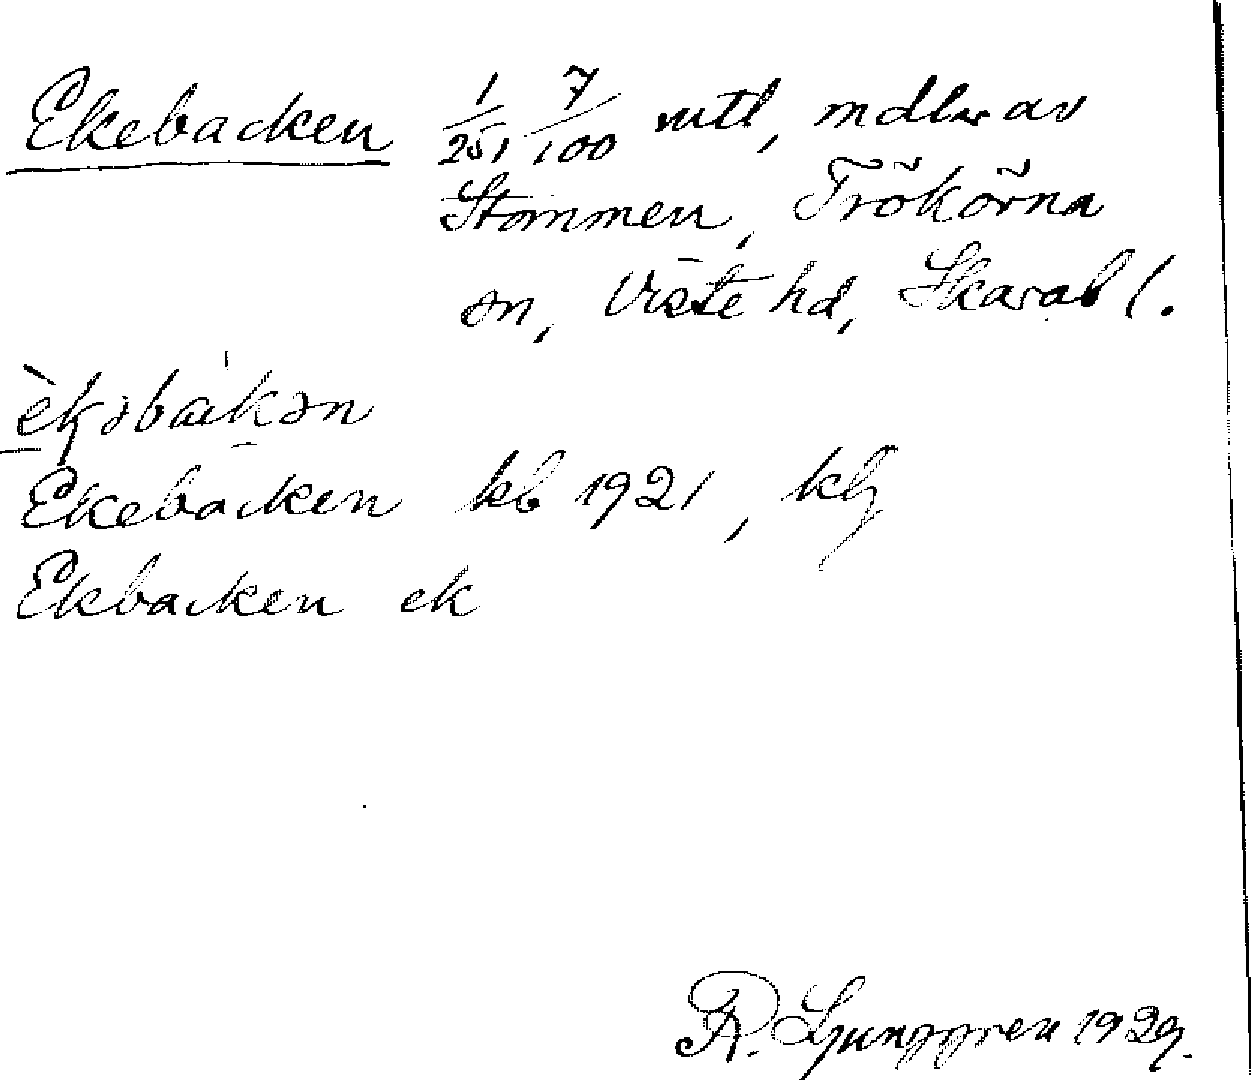 Ekebacken 1/251 7/100 mtl, mdlr av
Stommen, Trökörna
sn, Viste hd, Skarab l.
èkəbàkən
Ekebacken kb 1921, klg
Ekbacken ek
R. Ljunggren 1929.